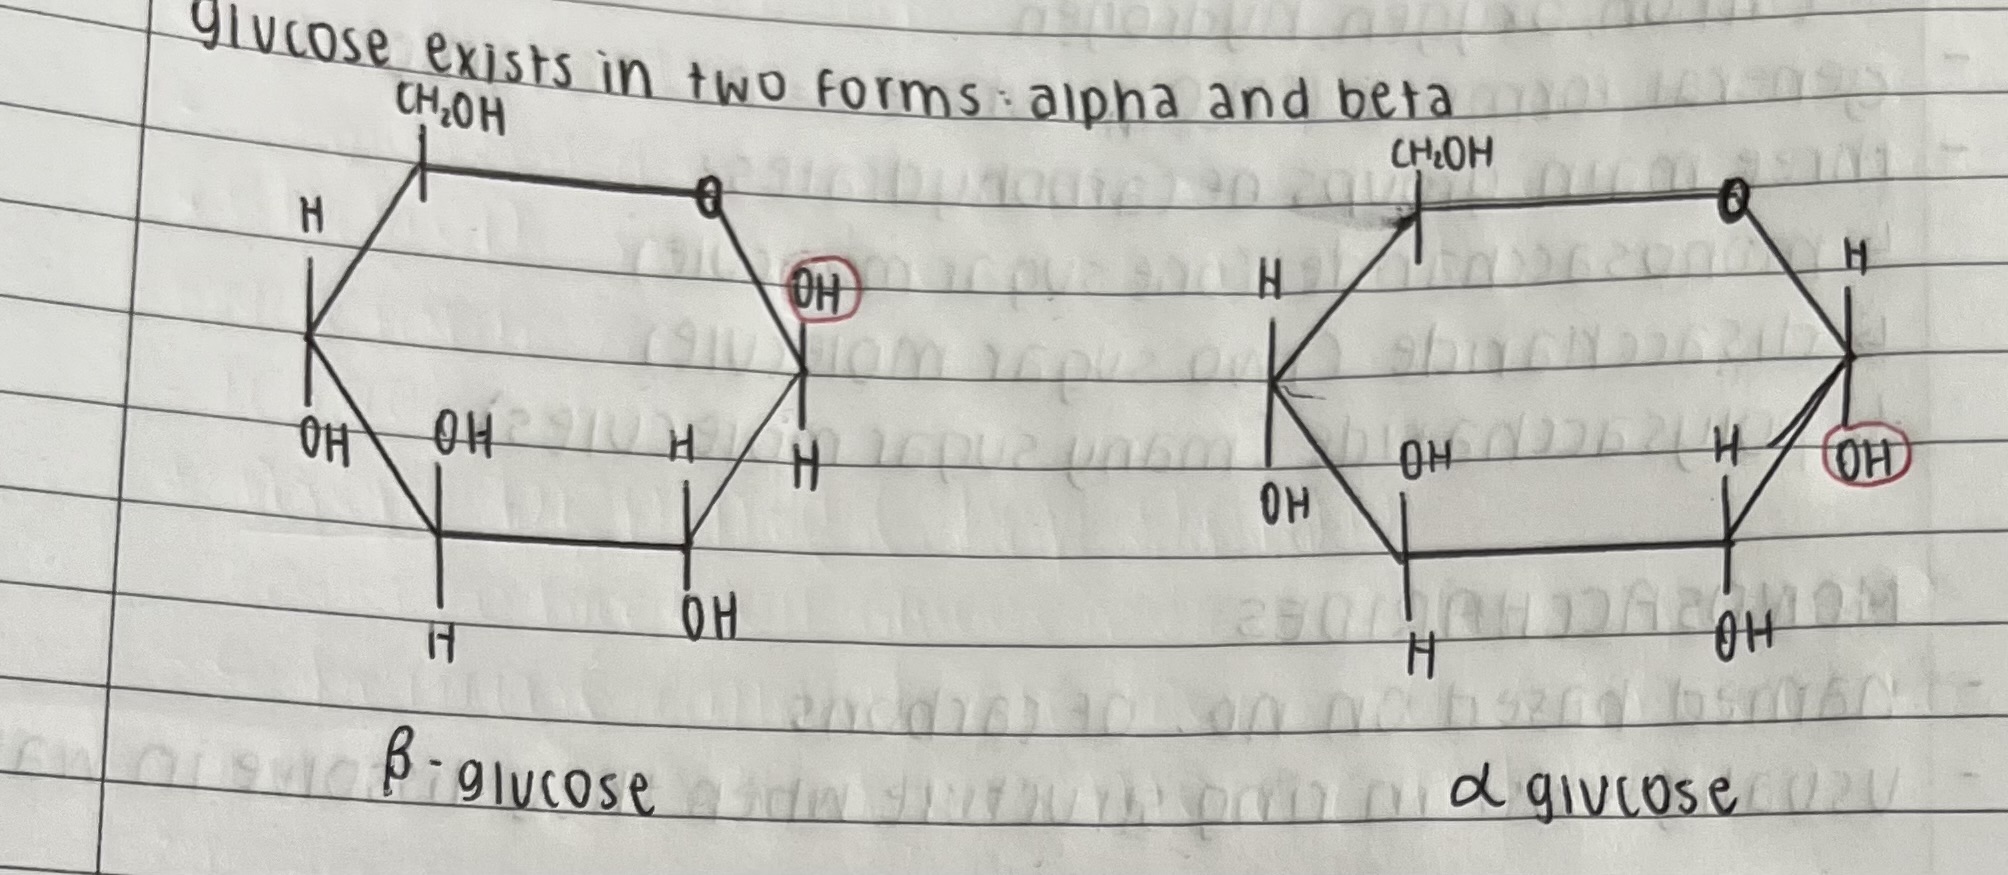 glucose exists in two forms: alpha and beta
CH₂OH CH₂OH
O O
H H
OH H
H H
OH OH H OH H OH
H OH
H OH H OH
β-glucose α glucose